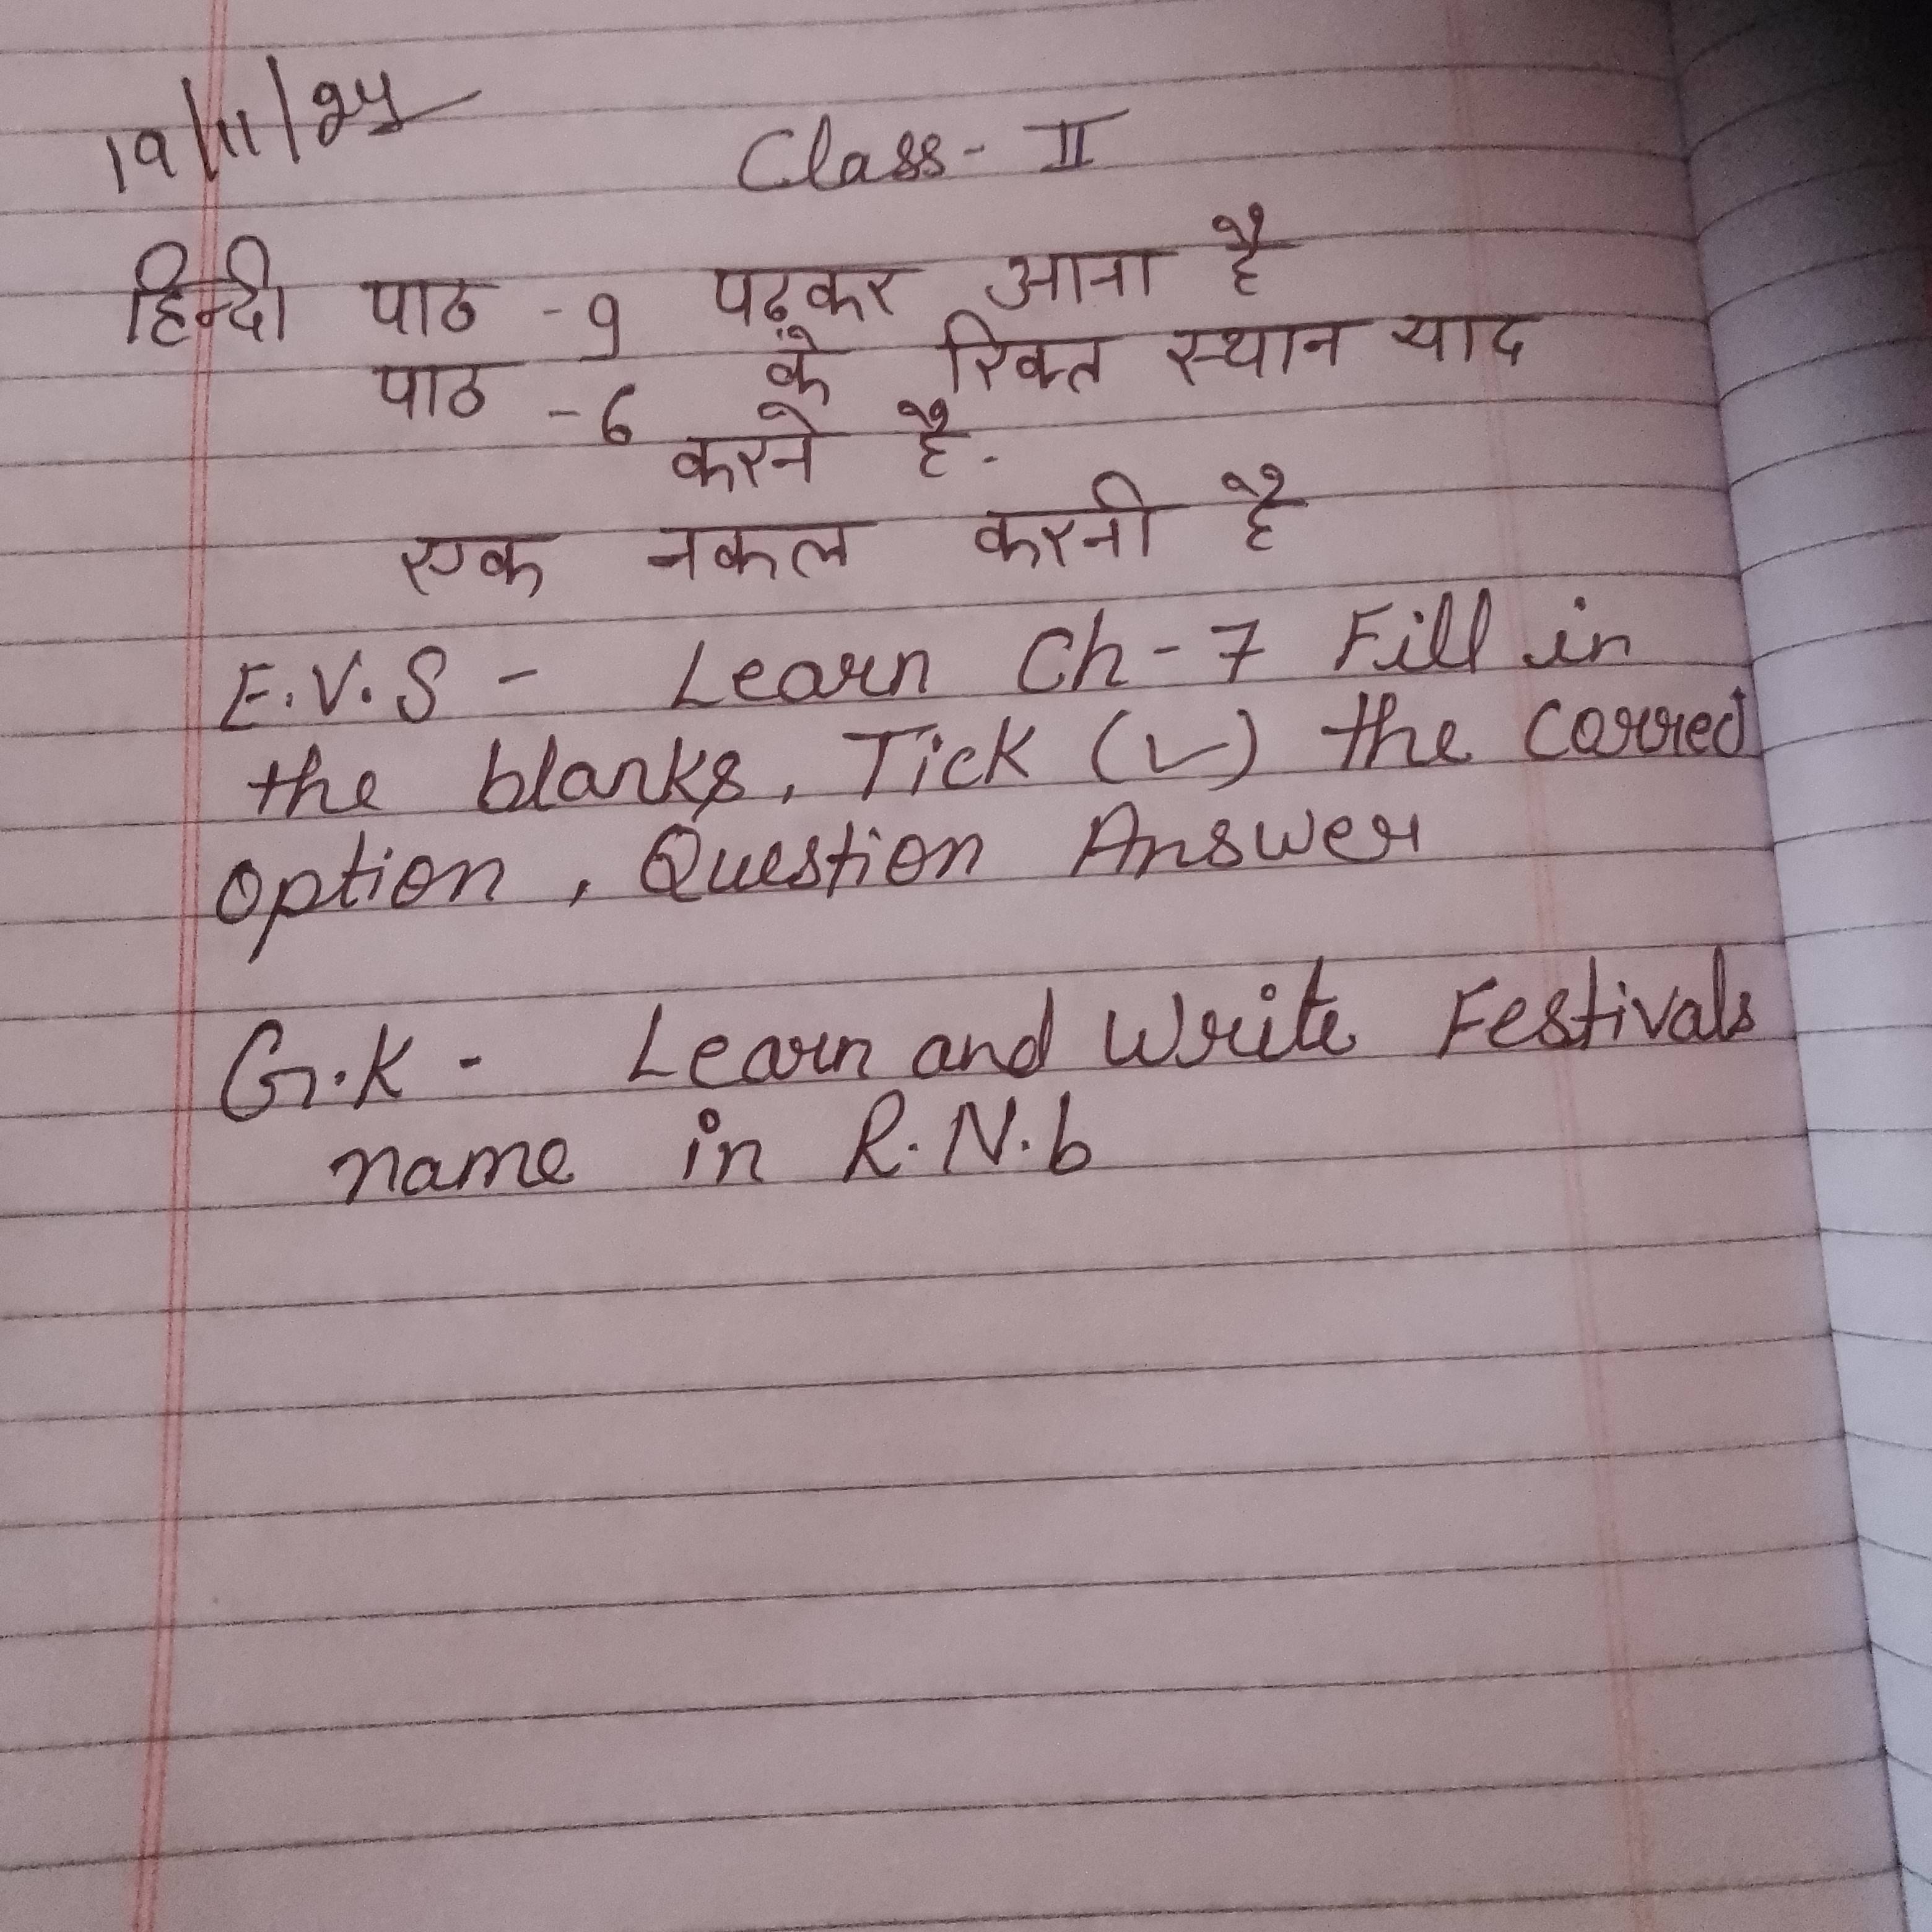 19/11/24
Class - II
हिन्दी पाठ - 9 पढ़कर आना है
पाठ - 6 के रिक्त स्थान याद
करने है.
एक नकल करनी है
E.V.S - Learn Ch - 7 Fill in
the blanks, Tick (✓) the correct
option, Question Answer
G.K - Learn and Write Festivals
name in R.N.b